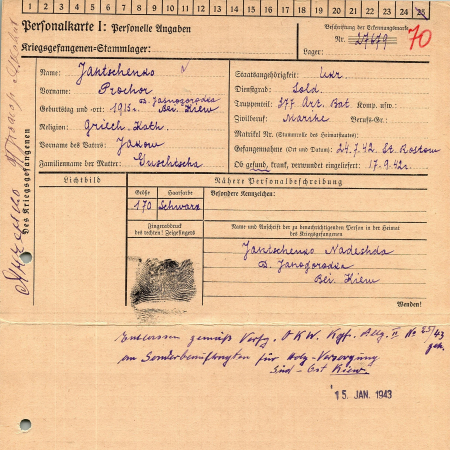 1 2 3 4 5 6 7 8 9 10 11 12 13 14 15 16 17 18 19 20 21 22 23 24 25
Personalkarte I: Personelle Angaben
Kriegsgefangenen-Stammlager:
Beschriftung der Erkennungsmarke
Nr. 27679
70
Lager:
Des Kriegsgefangenen
Name: Jantschenko
Vorname: Prochor
Geburtstag und -ort: 1915. D. Jasnogorodka Bei. Kiew
Religion: Griech. Kath.
Vorname des Vaters: Jakow
Familienname der Mutter: Guschtscha
Staatsangehörigkeit: Ukr
Dienstgrad: Sold.
Truppenteil: 377 Art. Bat. Komp. usw.:
Zivilberuf: Berufs-Gr.:
Matrikel Nr. (Stammrolle des Heimatstaates):
Gefangennahme (Ort und Datum): 24.7.42. St. Rostow
Ob gesund, krank, verwundet eingeliefert: 17.9.42.
Lichtbild
Nähere Personalbeschreibung
Größe Haarfarbe
170 Schwarz
Besondere Kennzeichen:
Fingerabdruck
des rechten! Zeigefingers
Name und Anschrift der zu benachrichtigenden Person in der Heimat
des Kriegsgefangenen
Jantschenko Nadeshda
D. Jasnogorodka
Bei. Kiew
Wenden!
Entlassen gemäß Verfg. OKW. Kgf. Allg. II No
an Sonderbeauftragten für Holz-Versorgung
Süd-Ost Kiew.
15. JAN. 1943